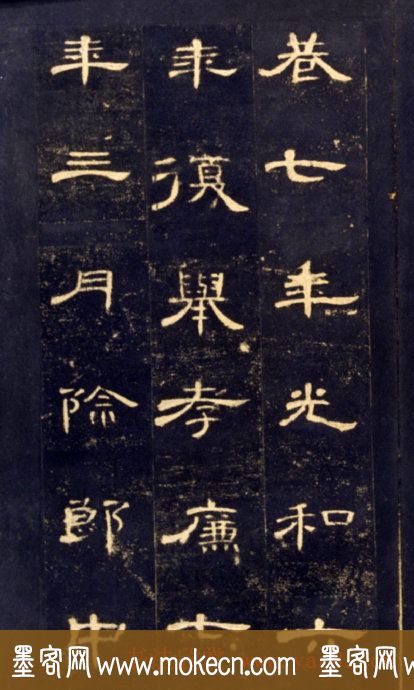 巷七年光和六
年復舉孝廉七
年三月除郎中
墨客网 www.mokecn.com 墨客网